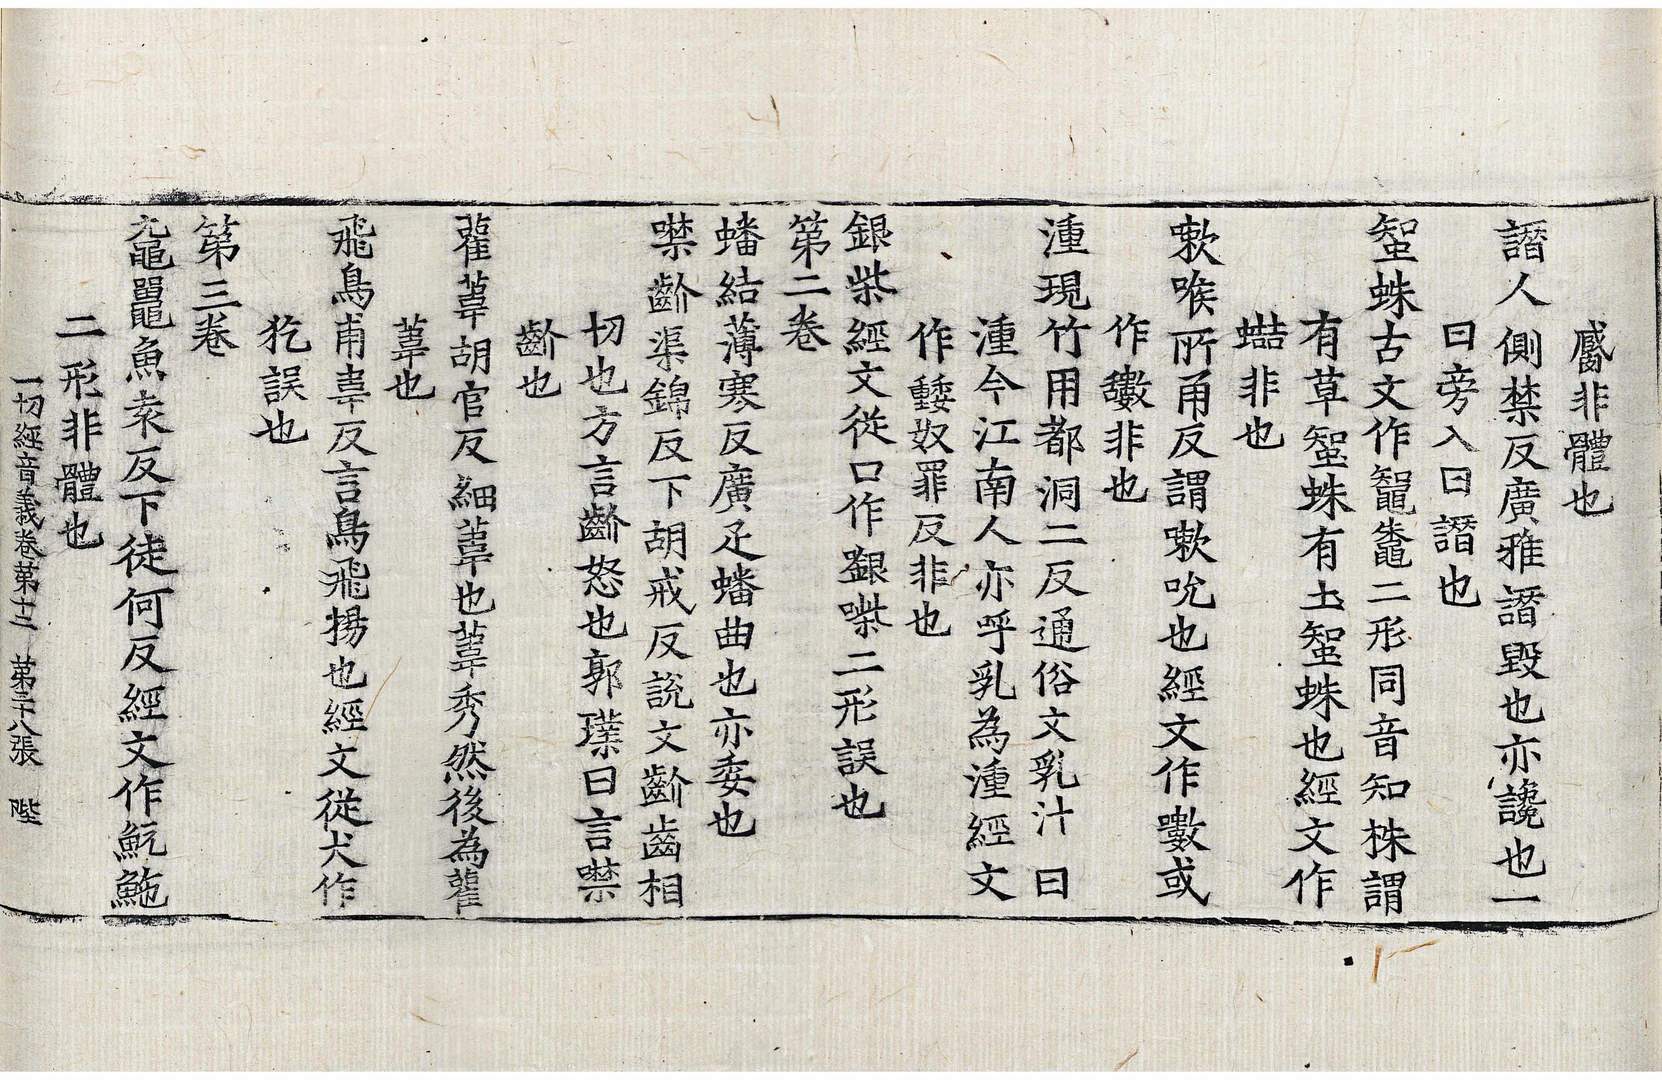 靨非體也
譖人側禁反廣雅譖毀也亦讒也一
曰旁入曰譖也
蝁蛛古文作鼅鼄二形同音知株謂
有草蝁蛛有土蝁蛛也經文作
蛣非也
嗽喉所角反謂嗽吮也經文作㗙或
作㰕非也
湩現竹用都洞二反通俗文乳汁曰
湩今江南人亦呼乳為湩經文
作䱰奴罪反非也
銀柴經文從口作齦㗫二形誤也
第二卷
蟠結薄寒反廣疋蟠曲也亦委也
噤齘渠錦反下胡戒反說文齘齒相
切也方言齘怒也郭璞曰言噤
齘也
雚葦胡官反細葦也葦秀然後為雚
葦也
飛鳥甫韋反言鳥飛揚也經文從犬作
犵誤也
第三卷
黿鼉魚袁反下徒何反經文作魭鮀
二形非體也
一切經音義卷第十三 第三十八張 陛